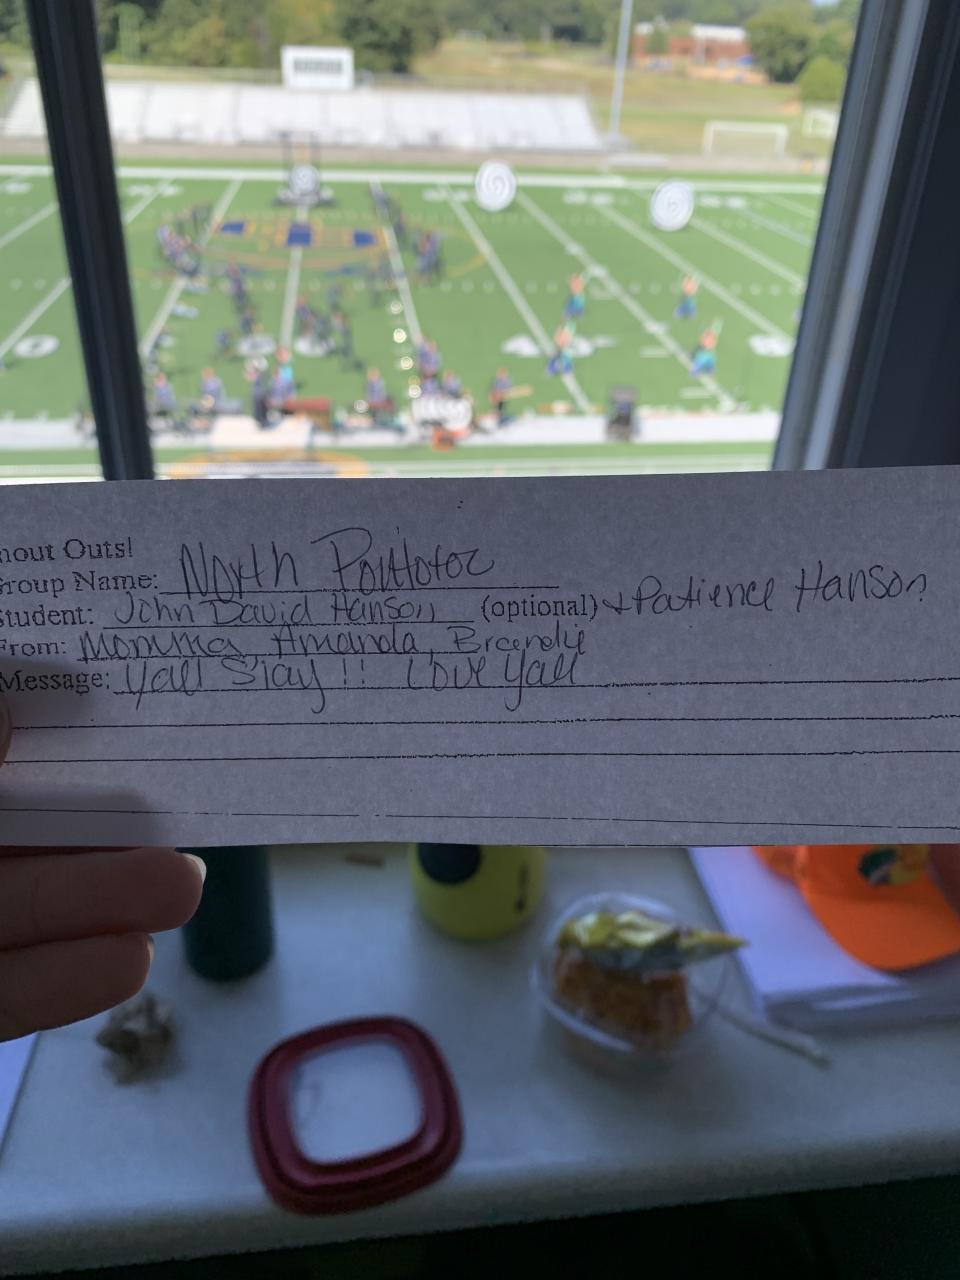 hout Outs!
Group Name: North Pontotoc
Student: John David Hanson (optional) + Patience Hanson
From: Momma, Amanda, Brandie
Message: Yall Slay!! Love Yall